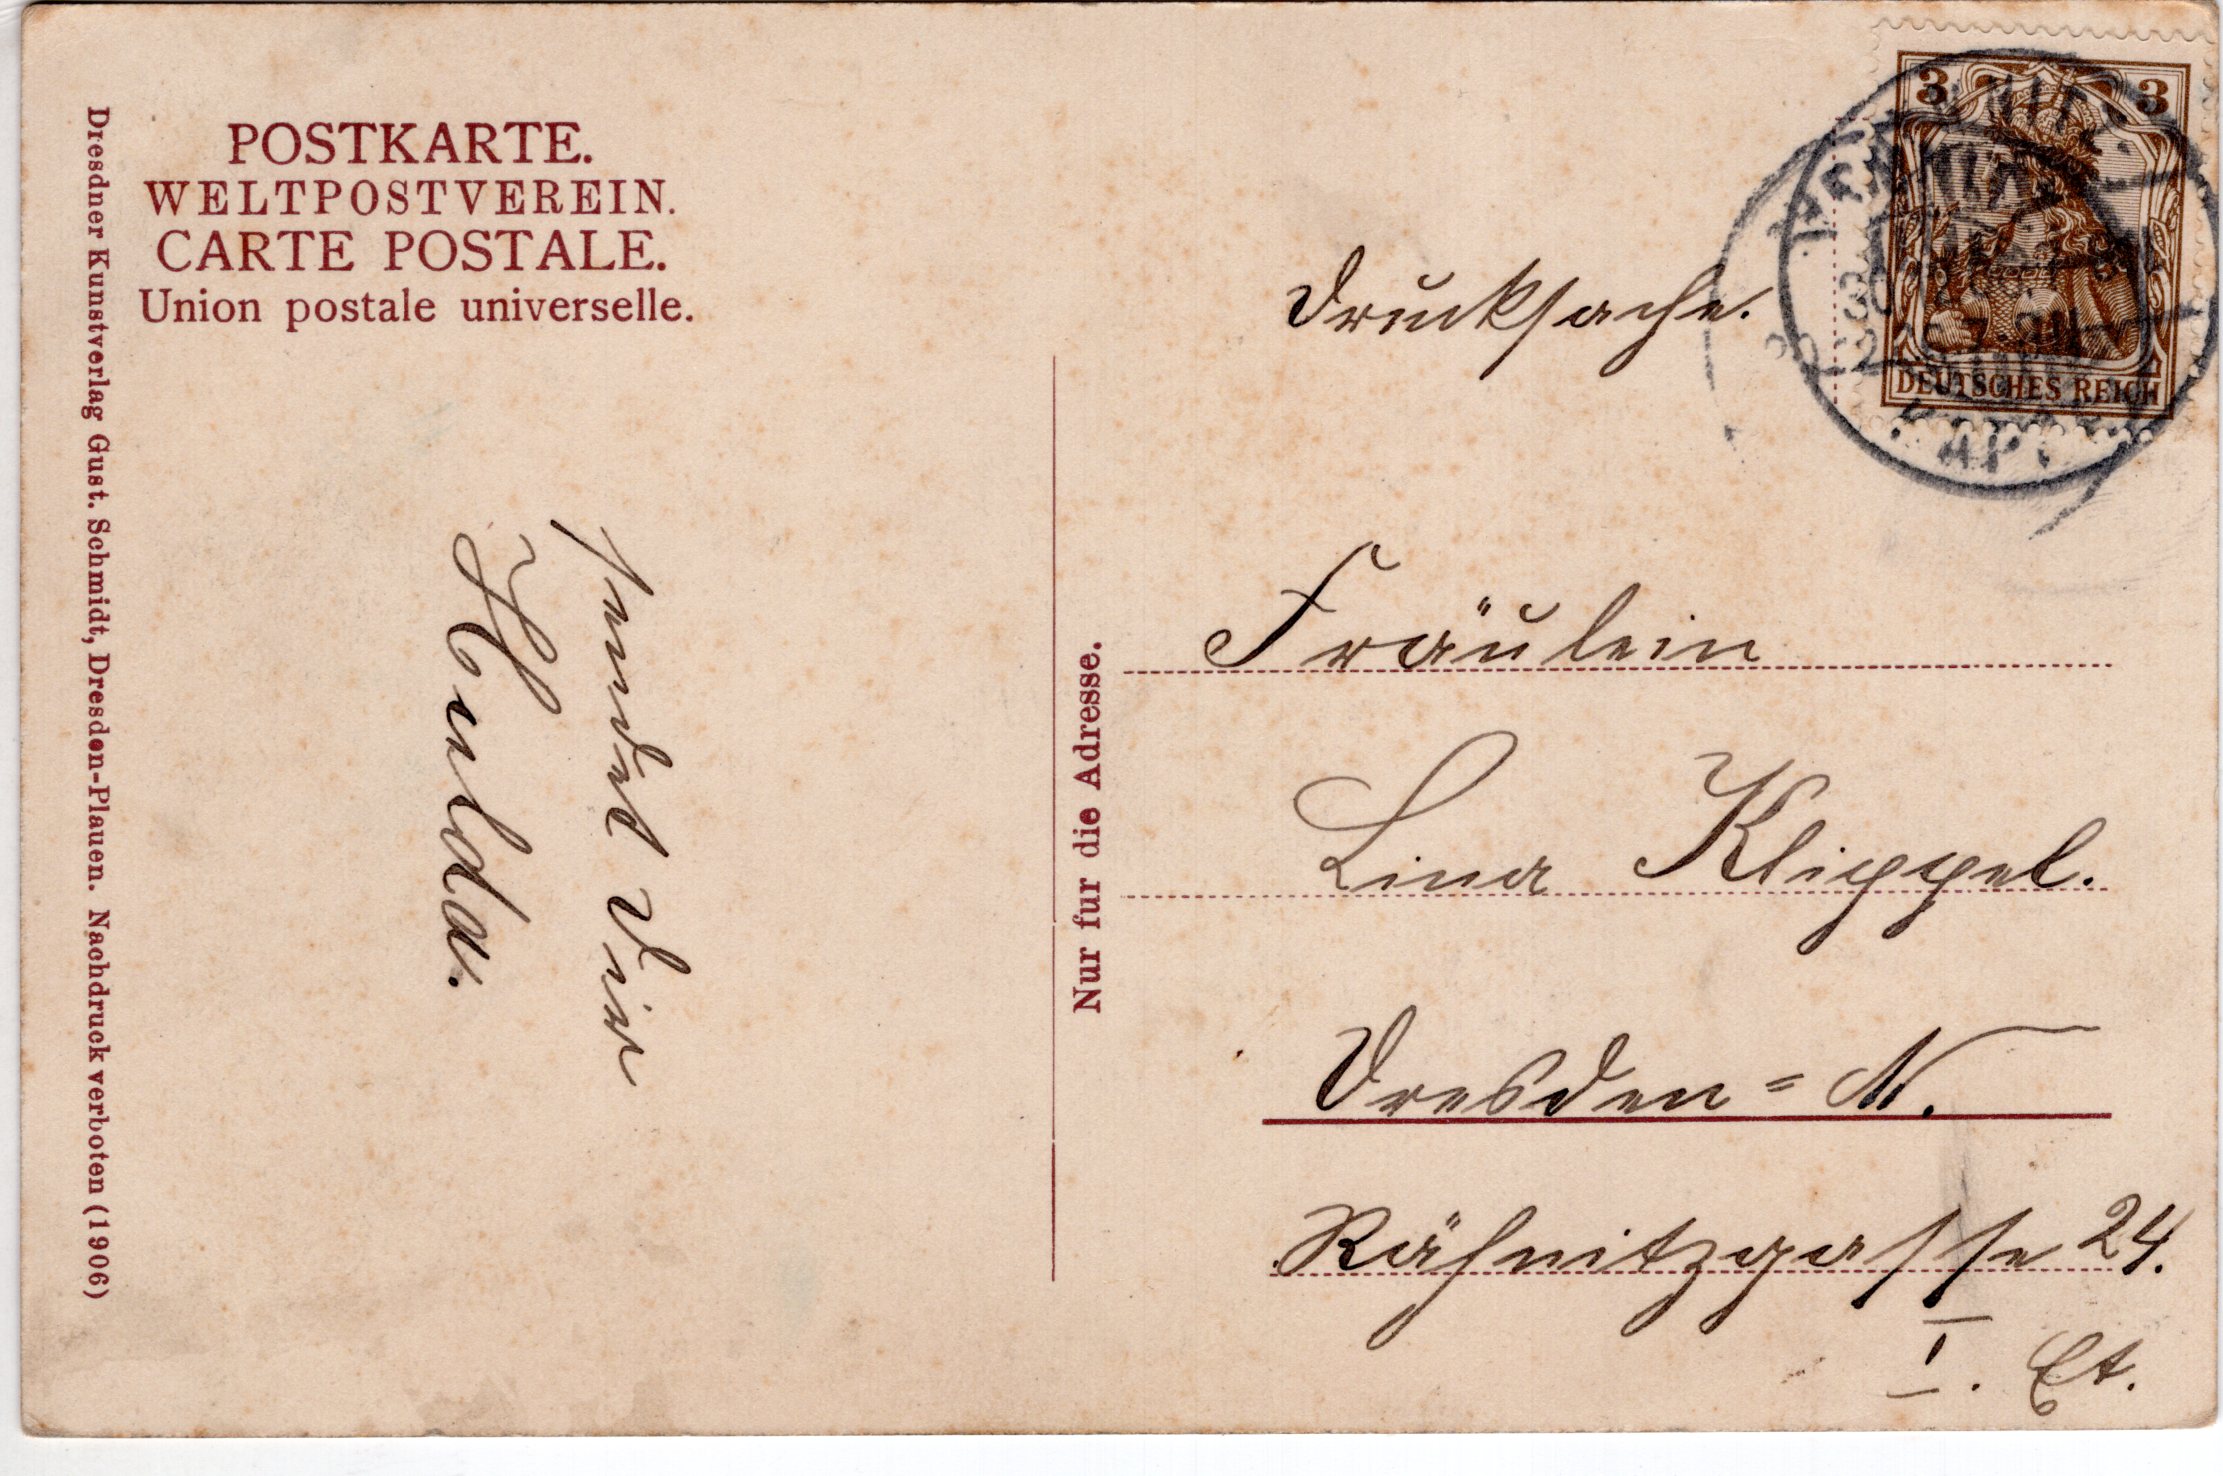 POSTKARTE.
WELTPOSTVEREIN.
CARTE POSTALE.
Union postale universelle.
Dresdner Kunstverlag Gust. Schmidt, Dresden-Plauen. Nachdruck verboten (1906)
sendet Dir
Hulda.
Nur fur die Adresse.
3 3
DEUTSCHES REICH
Drucksache.
Fräulein
Lina Klippel.
Dresden=N.
Rähnitzgasse 24.
I. Et.